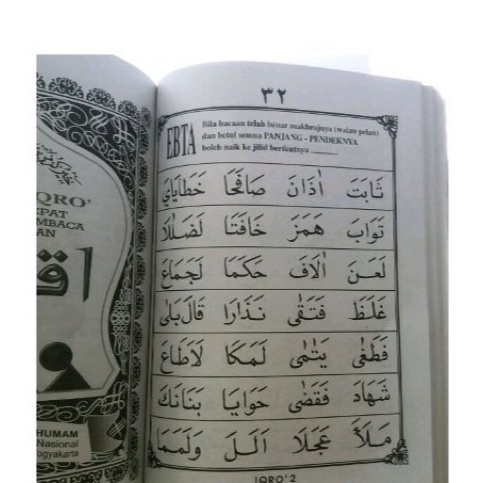 QRO'
EPAT
MBACA
AN
HUMAM
Nasional
ogyakarta
٣٢
EBTA
Bila bacaan telah benar makhrajnya (walau pelan)
dan betul semua PANJANG - PENDEKNYA
boleh naik ke jilid berikutnya ..........
خَطَايَايَ صَافَحَا اَذَانَ ثَابَتَ
خَافَتَا هَمَزَ تَوَابَ
لَجَمَاعَ حَكَمَا اٰلَافَ لَعَنَ
قَالَ بَلٰى نَذَارَا فَتَقٰى غَلَظَ
لَاطَاعَ لَمَكَا يَتَمٰى فَطَغٰى
بَنَانَكَ حَوَايَا فَقَضٰى شَهَادَ
وَلَمَمَا اَلَلَ عَجَلَا مَلَأَ
IQRO' 2